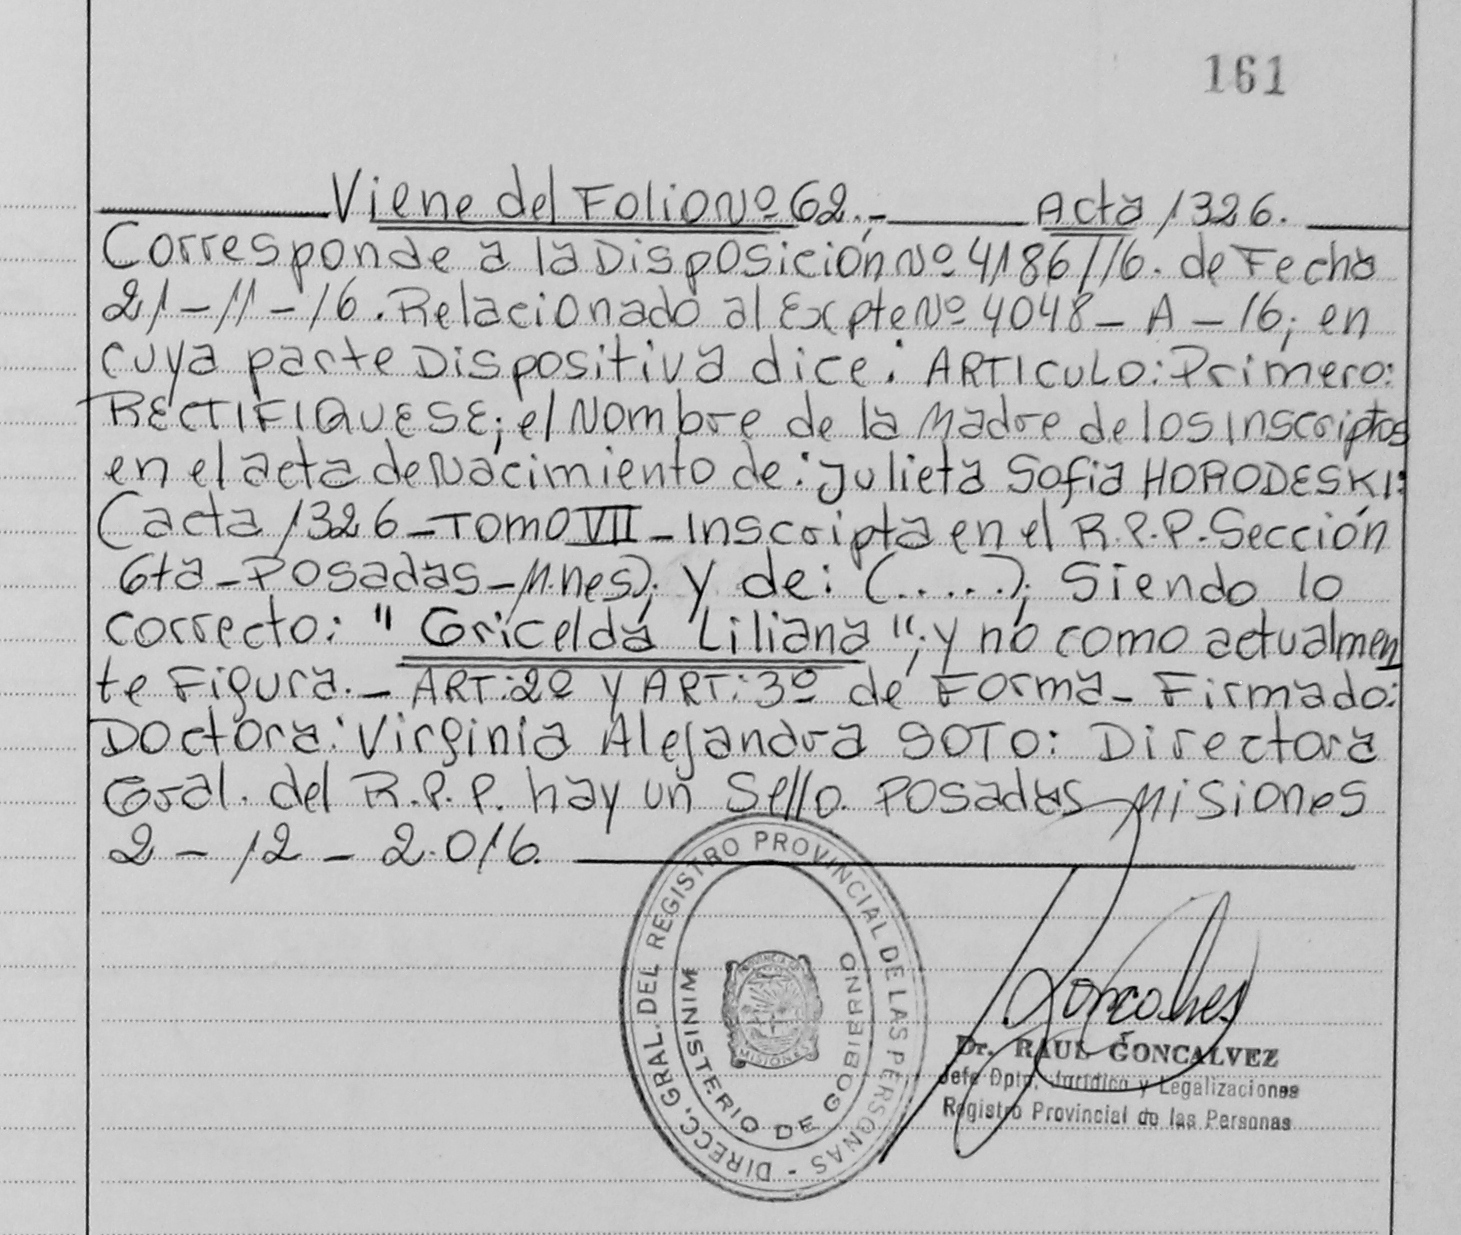 161
Viene del Folio Nº 62.- Acta 1326.
Corresponde a la Disposición Nº 4186/16. de Fecha
21-11-16. Relacionado al Expte Nº 4048-A-16; en
cuya parte Dispositiva dice: ARTICULO: Primero:
RECTIFIQUESE; el Nombre de la Madre de los Inscriptos
en el acta de Nacimiento de: Julieta Sofia HORODESKI:
(acta 1326-TOMO VII-Inscripta en el R.P.P. Sección
6ta-Posadas-M.nes); y de: (.....); Siendo lo
correcto: "Gricelda Liliana"; y no como actualmen
te Figura.- ART: 2º y ART: 3º de Forma- Firmado:
Doctora: Virginia Alejandra SOTO: Directora
Gral. del R.P.P. hay un Sello. Posadas-Misiones
2-12-2.016.
DIRECC. GRAL. DEL REGISTRO PROVINCIAL DE LAS PERSONAS -
MINISTERIO DE GOBIERNO
PROVINCIA DE
MISIONES
Dr. RAUL GONCALVEZ
Jefe Dpto. Jurídico y Legalizaciones
Registro Provincial de las Personas